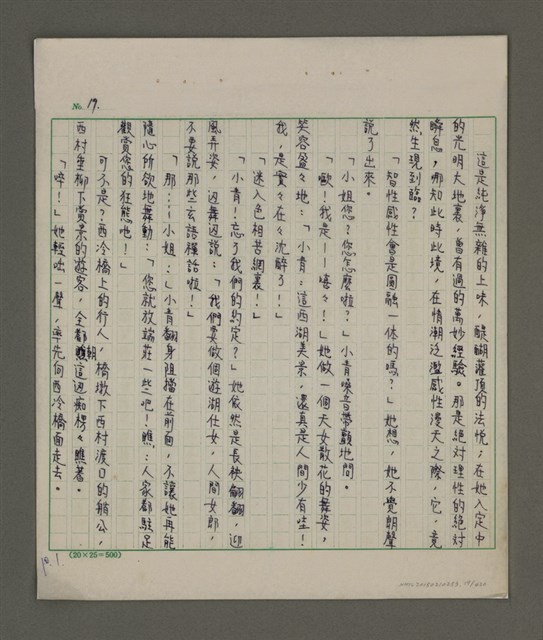 No. 19.
這是純淨無雜的上味，醍醐灌頂的法悅；在她入定中
的光明大地裏，曾有過的萬妙經驗。那是絕對理性的絕對
瞬息，哪知此時此境，在情潮泛濫感性漫天之際，它，竟
然生現到臨？
「智性感性會是圓融一体的嗎？」她想，她不覺朗聲
說了出來。
「小姐您？您怎麼啦？」小青嗓音帶顫地問。
「歐！我是！嘻々！」她做一個天女散花的舞姿，
笑容盈々地：「小青：這西湖美景，還真是人間少有哇！
我，是實々在々沈醉了！」
「迷入色相苦網裏！」
「小青！忘了我們的約定？」她依然是長袂翩翩，迎
風弄姿，迎舞迎說：「我們要做個遊湖仕女，人間女郎，
不要說那些玄語襌話啦！」
「那……小姐：」小青翻身阻擋在前面，不讓她再能
隨心所欲地舞動：「您就放端莊一些吧！瞧：人家都駐足
觀賞您的狂態吔！」
可不是？西冷橋上的行人，橋墩下西村渡口的艄公，
西村垂柳下賞景的遊客，全都朝這迎痴楞々瞧著。
「啐！」她輕呸一聲，率先向西冷橋面走去。
(20×25=500)